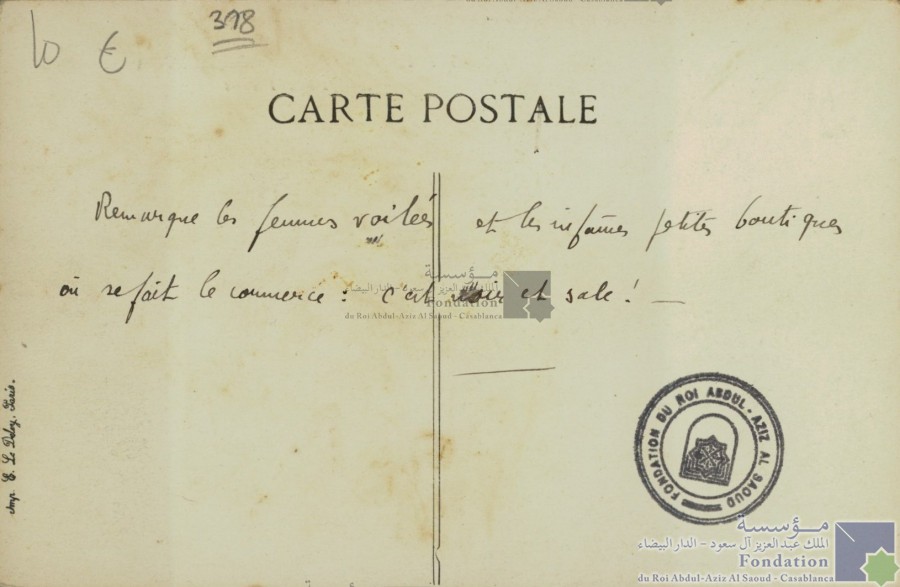 318
10 €
CARTE POSTALE
Remarque les femmes voilées et les infâmes petites boutiques
où se fait le commerce : c'est noir et sale ! —
مؤسسة
الملك عبد العزيز آل سعود - الدار البيضاء
Fondation
du Roi Abdul-Aziz Al Saoud - Casablanca
Imp. E. Le Deley, Paris.
FONDATION DU ROI ABDUL-AZIZ AL SAOUD
مؤسسة
الملك عبد العزيز آل سعود - الدار البيضاء
Fondation
du Roi Abdul-Aziz Al Saoud - Casablanca